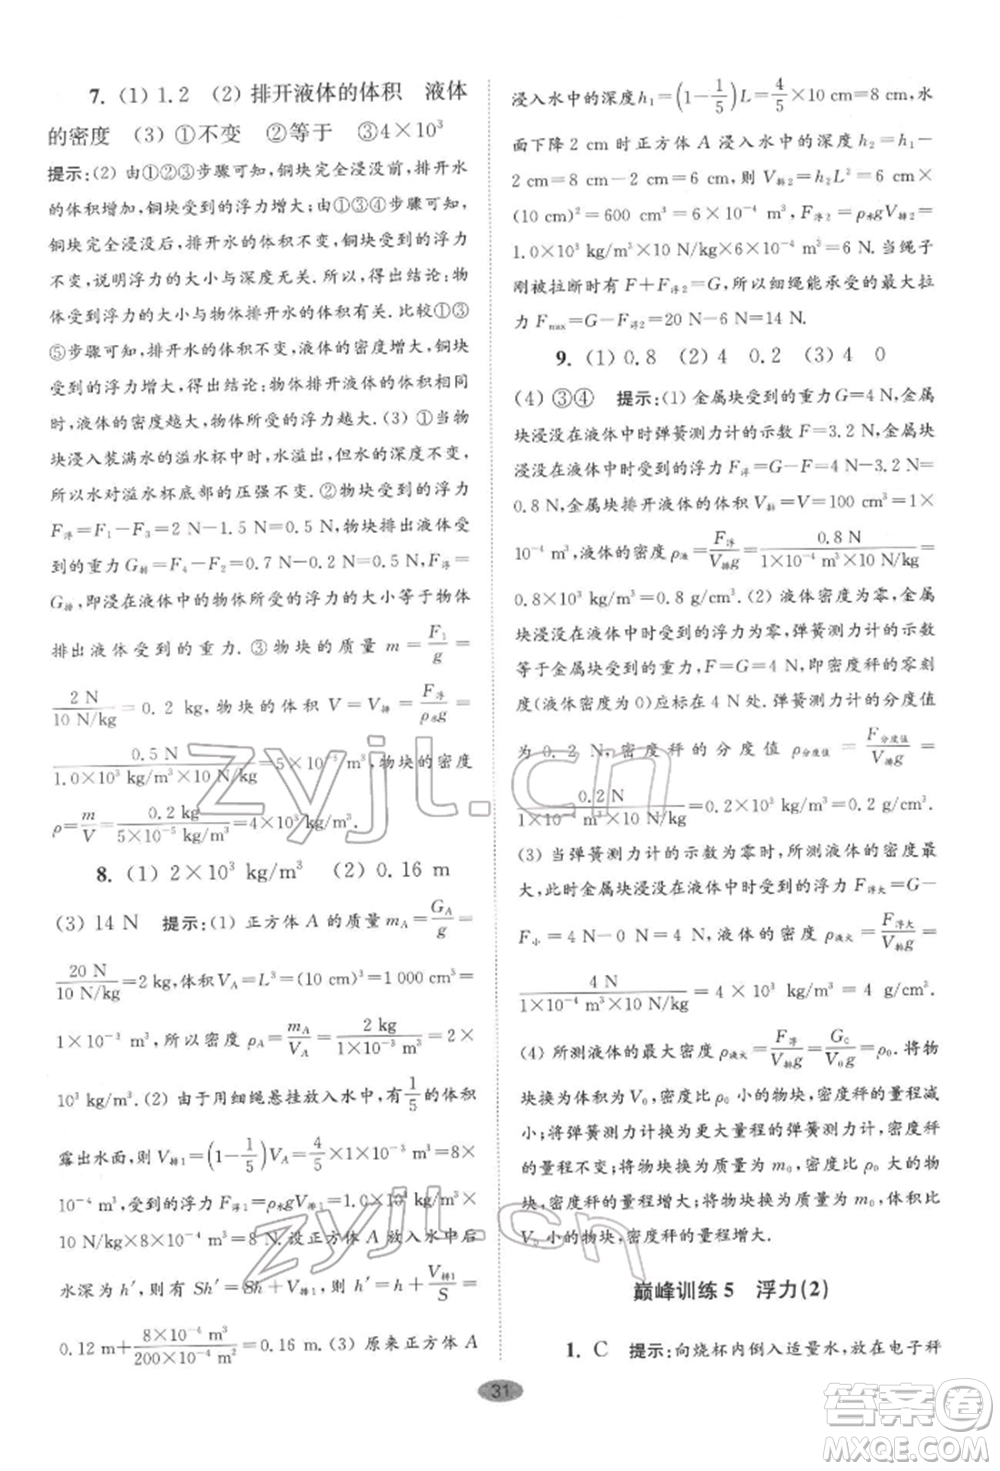 7. (1) 1.2 (2) 排开液体的体积 液体
的密度 (3) ①不变 ②等于 ③4×10³
提示:(2) 由①②③步骤可知,铜块完全浸没前,排开水
的体积增加,铜块受到的浮力增大;由①③④步骤可知,
铜块完全浸没后,排开水的体积不变,铜块受到的浮力
不变,说明浮力的大小与深度无关.所以,得出结论:物
体受到浮力的大小与物体排开水的体积有关.比较①③
⑤步骤可知,排开水的体积不变,液体的密度变大,铜块
受到的浮力增大,得出结论:在物体排开液体的体积相同
时,液体的密度越大,物体所受的浮力越大.(3) ①当物
块浸入装满水的溢水杯中时,水面的高度、水的密度不变,
所以水对溢水杯底部的压强不变.②物块受到的浮力
F浮=F₁-F₃=2 N-1.5 N=0.5 N,物块排出液体受到
的重力G排=F₄-F₂=0.7 N-0.2 N=0.5 N,F浮=
G排,即浸在液体中的物体所受的浮力的大小等于物体
排出液体受到的重力.③物块的质量 m=F₁/g=
2 N/10 N/kg=0.2 kg,物块的体积 V=V排=F浮/ρ水g=
0.5 N/1.0×10³ kg/m³×10 N/kg=5×10⁻⁵ m³,物块的密度
ρ=m/V=0.2 kg/5×10⁻⁵ m³=4×10³ kg/m³.
8. (1) 2×10³ kg/m³ (2) 0.16 m
(3) 14 N 提示:(1) 正方体 A 的质量 mA=GA/g=
20 N/10 N/kg=2 kg,体积 VA=L³=(10 cm)³=1 000 cm³=
1×10⁻³ m³,所以密度 ρA=mA/VA=2 kg/1×10⁻³ m³=2×
10³ kg/m³.(2) 由于用细绳悬挂放入水中,有1/5的体积
露出水面,则 V排1=(1-1/5)VA=4/5×1×10⁻³ m³=8×
10⁻⁴ m³,受到的浮力 F浮1=ρ水gV排1=1.0×10³ kg/m³×
10 N/kg×8×10⁻⁴ m³=8 N.设正方体 A 放入水中后
水深为 h′,有 Sh′=Sh+V排1,则 h′=h+V排1/S=
0.12 m+8×10⁻⁴ m³/200×10⁻⁴ m²=0.16 m.(3) 原来正方体 A
浸入水中的深度h₁=(1-1/5)L=4/5×10 cm=8 cm,水
面下降 2 cm 时正方体 A 浸入水中的深度 h₂=h₁-
2 cm=8 cm-2 cm=6 cm,则 V排2=h₂L²=6 cm×
(10 cm)²=600 cm³=6×10⁻⁴ m³,F浮2=ρ水gV排2=
1.0×10³ kg/m³×10 N/kg×6×10⁻⁴ m³=6 N.当绳子
刚被拉断时有 F+F浮2=G,所以,细绳能承受的最大拉
力 Fmax=G-F浮2=20 N-6 N=14 N.
9. (1) 0.8 (2) 4 0.2 (3) 4 0
(4) ③④ 提示:(1) 金属块受到的重力G=4 N,金属
块浸没在液体中时弹簧测力计的示数 F=3.2 N,金属块
浸没在液体中时受到的浮力 F浮=G-F=4 N-3.2 N=
0.8 N,金属块排开液体的体积 V排=V=100 cm³=1×
10⁻⁴ m³,液体的密度 ρ液=F浮/V排g=0.8 N/1×10⁻⁴ m³×10 N/kg=
0.8×10³ kg/m³=0.8 g/cm³.(2) 液体密度为零,金属
块浸没在液体中时受到的浮力为零,弹簧测力计的示数
等于金属块受到的重力,F=G=4 N,即密度秤的零刻
度(液体密度为0)应标在 4 N 处.弹簧测力计的分度值
为 0.2 N,密度秤的分度值 ρ分度值=F分度值/V排g=
0.2 N/1×10⁻⁴ m³×10 N/kg=0.2×10³ kg/m³=0.2 g/cm³.
(3) 当弹簧测力计的示数为零时,所测液体的密度最
大,此时金属块浸没在液体中时受到的浮力 F浮大=G-
F小=4 N-0 N=4 N,液体的密度 ρ液大=F浮大/V排g=
4 N/1×10⁻⁴ m³×10 N/kg=4×10³ kg/m³=4 g/cm³.
(4) 所测液体的最大密度 ρ液大=F浮/V排g=G₀/V₀g=ρ₀.将物
块换为体积为 V₀、密度更小的物块,密度秤的量程减
小;将弹簧测力计换为更大量程的弹簧测力计,密度秤
的量程不变;将物块换为体积为 V₀、质量比 m₀ 大的物
块,密度秤的量程增大;将物块换为质量为 m₀,体积比
V₀ 小的物块,密度秤的量程增大.
巅峰训练 5 浮力(2)
1. C 提示:向烧杯内倒入适量水,放在电子秤
31
zyjl.cn
zyjl.cn
答案圈
MXQE.COM